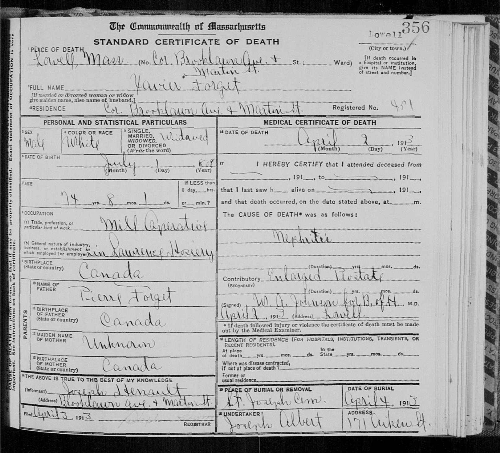 356
The Commonwealth of Massachusetts
Lowell
(City or town)
STANDARD CERTIFICATE OF DEATH
PLACE OF DEATH
Lowell Mass No. Cor. Brooklawn Ave. & Martin St. St. Ward)
[If death occurred in a hospital or institution, give its NAME instead of street and number.]
FULL NAME Forget
[If married or divorced woman or widow give maiden name, also name of husband.]
RESIDENCE Cor. Brooklawn Ave & Martin St Registered No.
PERSONAL AND STATISTICAL PARTICULARS
SEX Male
COLOR OR RACE White
SINGLE, MARRIED, WIDOWED, OR DIVORCED (Write the word) Widowed
DATE OF BIRTH
July
(Month) (Day) (Year)
AGE
If LESS than 1 day, hrs.
74 yrs. 8 mos. 1 ds. or min.?
OCCUPATION
(a) Trade, profession, or particular kind of work Mill Operative
(b) General nature of industry, business, or establishment in which employed (or employer) in Lawrence Hosiery
BIRTHPLACE
(State or country) Canada
PARENTS
NAME OF FATHER Pierre Forget
BIRTHPLACE OF FATHER (State or country) Canada
MAIDEN NAME OF MOTHER Unknown
BIRTHPLACE OF MOTHER (State or country) Canada
THE ABOVE IS TRUE TO THE BEST OF MY KNOWLEDGE
(Informant) Joseph
(Address) Brooklawn Ave. & Martin St
Filed April 3 191
REGISTRAR
MEDICAL CERTIFICATE OF DEATH
DATE OF DEATH
April 2 191
(Month) (Day) (Year)
I HEREBY CERTIFY that I attended deceased from
, 191 , to , 191 ,
that I last saw h alive on , 191 ,
and that death occurred, on the date stated above, at m.
The CAUSE OF DEATH* was as follows:
Nephritis
(Duration) yrs. mos. ds.
Contributory Enlarged Prostate
(SECONDARY)
(Duration) yrs. mos. ds.
(Signed) W. A. Johnson for B. of H. M.D.
April 2 191 (Address) Lowell
* If death followed injury or violence the certificate of death must be made out by the Medical Examiner.
LENGTH OF RESIDENCE (FOR HOSPITALS, INSTITUTIONS, TRANSIENTS, OR RECENT RESIDENTS).
At place of death yrs. mos. ds. In the State yrs. mos. ds.
Where was disease contracted, if not at place of death?
Former or usual residence
PLACE OF BURIAL OR REMOVAL
St. Joseph Cem
DATE OF BURIAL
April 4 191
UNDERTAKER
Joseph Albert
ADDRESS
171 Aiken St.